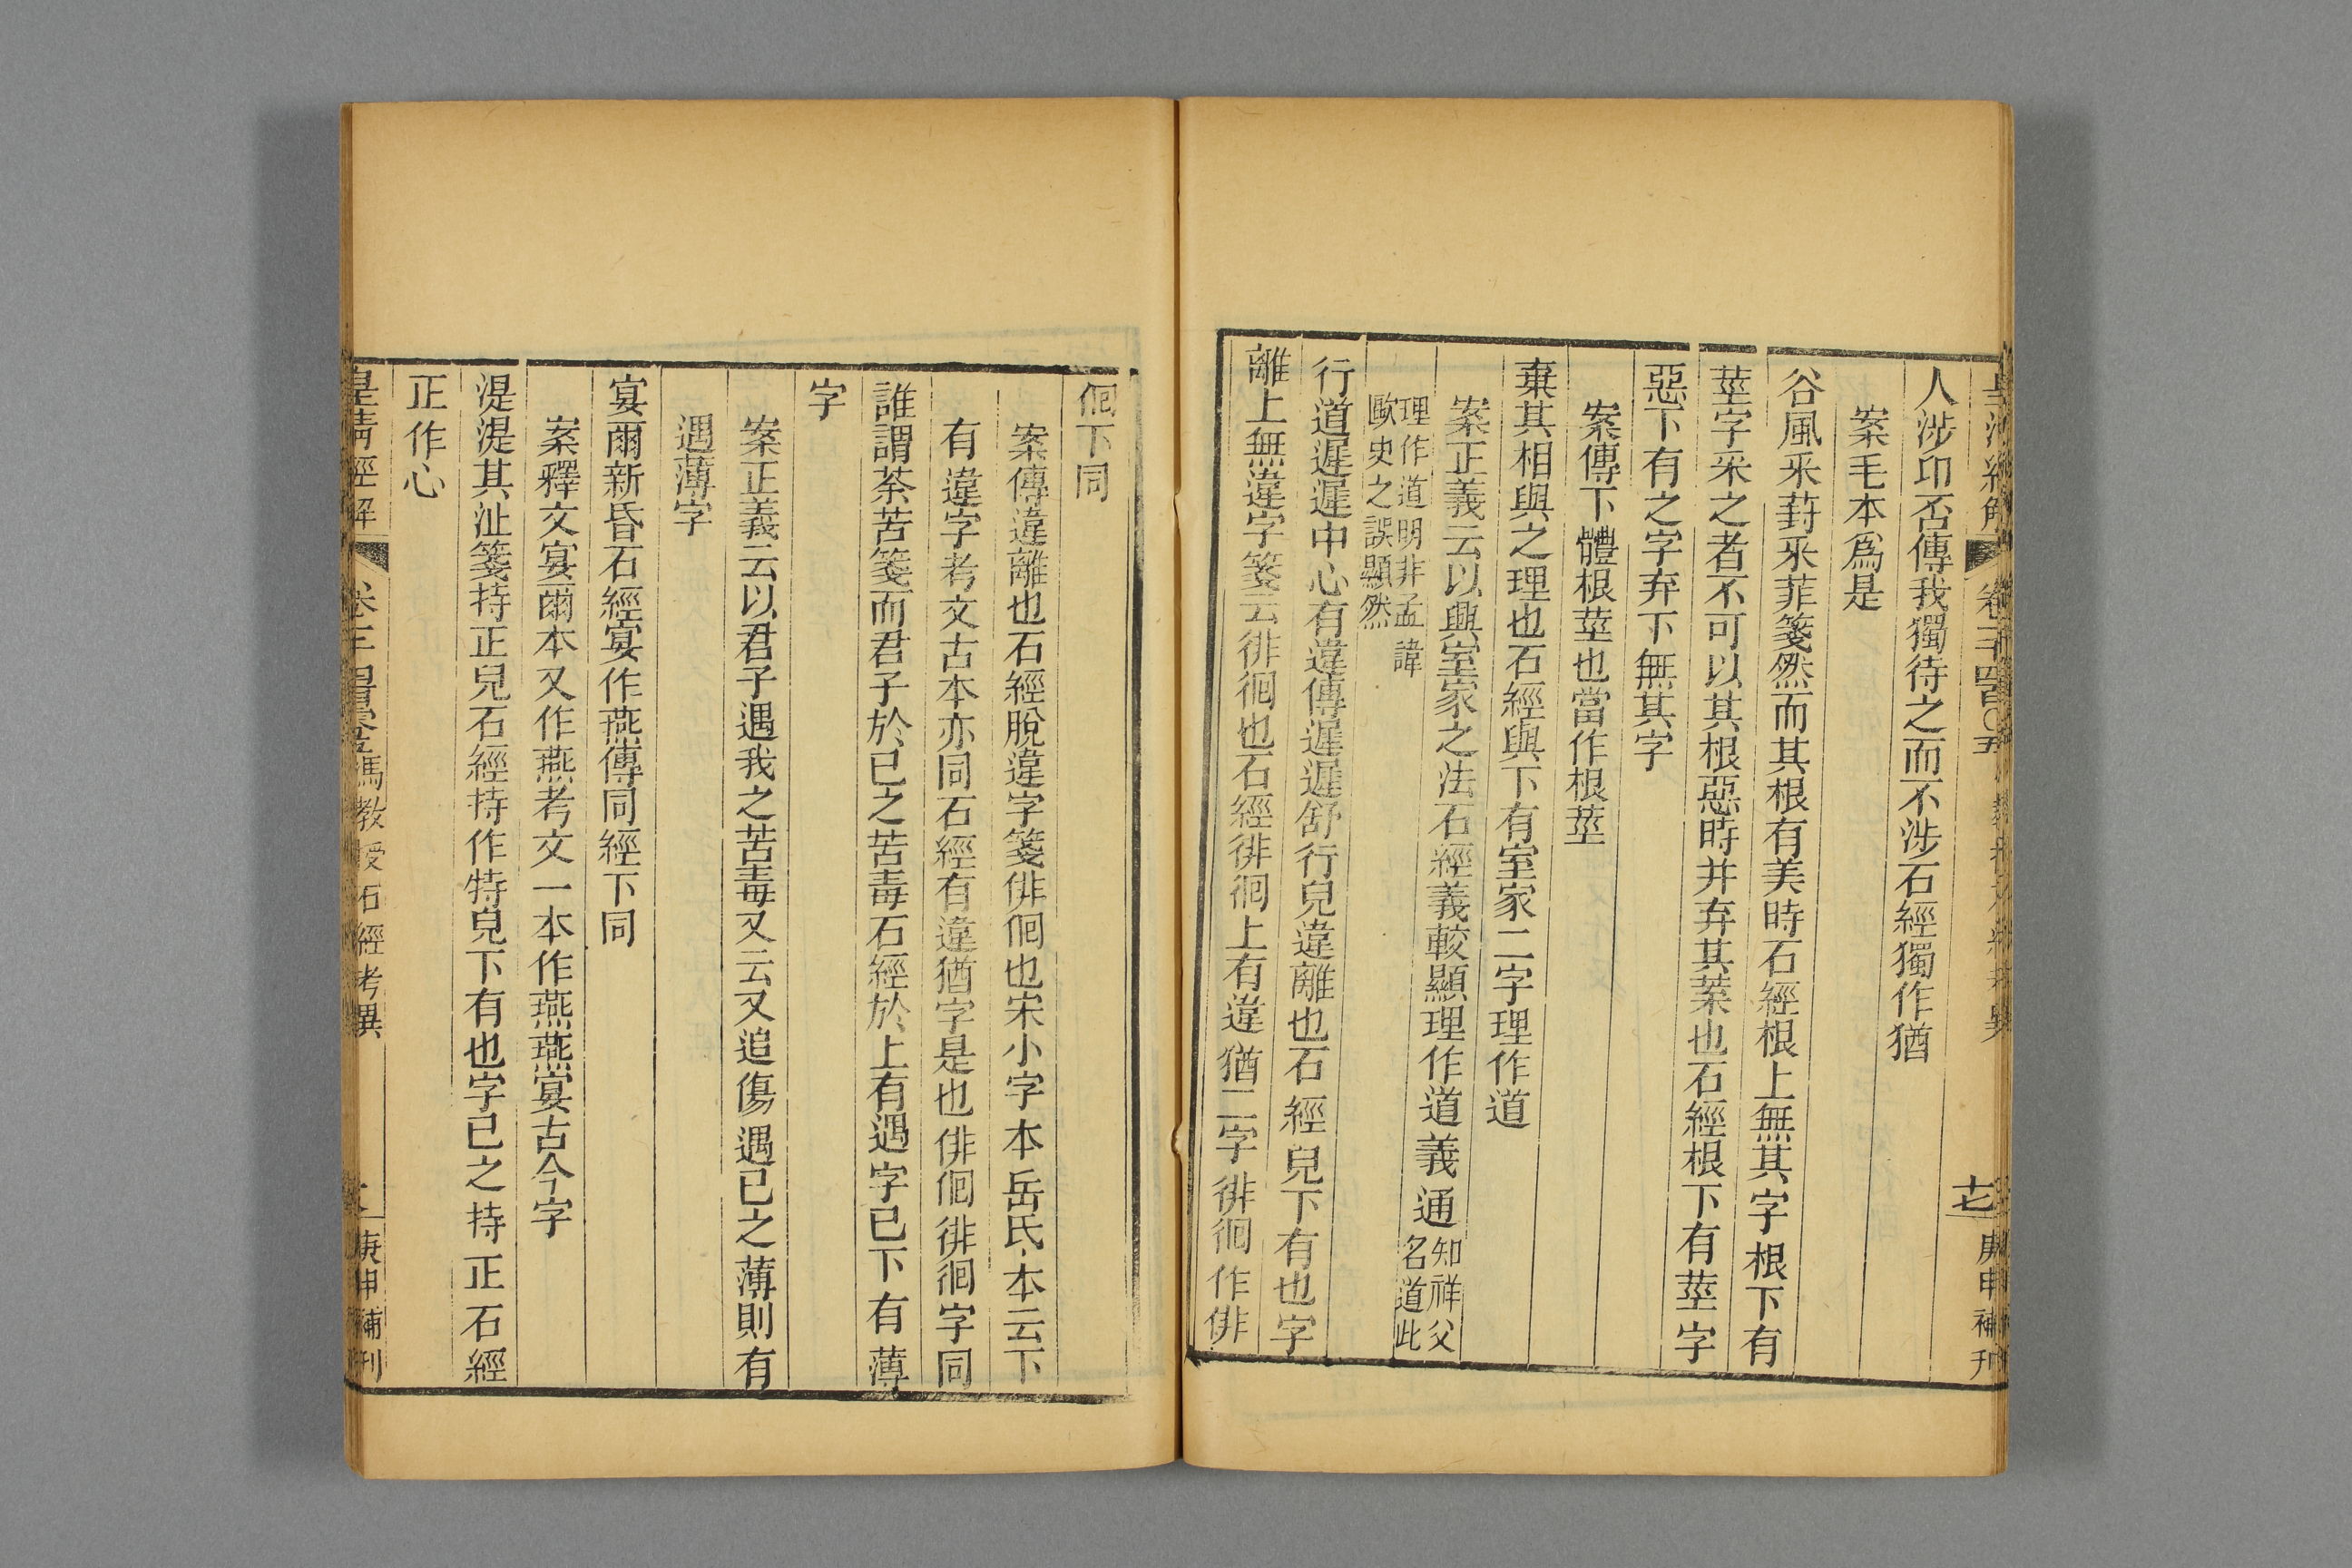 人涉卬否傳我獨待之而不涉石經獨作猶
案毛本爲是
谷風采葑采菲箋然而其根有美時石經根上無其字根下有
莖字采之者不可以其根惡時并弃其葉也石經根下有莖字
惡下有之字弃下無其字
案傳下體根莖也當作根莖
棄其相與之理也石經與下有室家二字理作道
案正義云以與室家之法石經義較顯理作道義通知祥父名道此
理作道明非孟諱
歐史之誤顯然
行道遲遲中心有違傳遲遲舒行皃違離也石經皃下有也字
離上無違字箋云徘徊也石經徘徊上有違猶二字徘徊作俳
佪下同
案傳違離也石經脫違字箋俳佪也宋小字本岳氏本云下
有違字考文古本亦同石經有違猶字是也俳佪徘徊字同
誰謂荼苦箋而君子於已之苦毒石經於上有遇字已下有薄
字
案正義云以君子遇我之苦毒又云又追傷遇已之薄則有
遇薄字
宴爾新昏石經宴作燕傳同經下同
案釋文宴爾本又作燕考文一本作燕燕宴古今字
湜湜其沚箋持正皃石經持作特皃下有也字已之持正石經
正作心
皇清經解
馮教授石經考異
庚申補刊